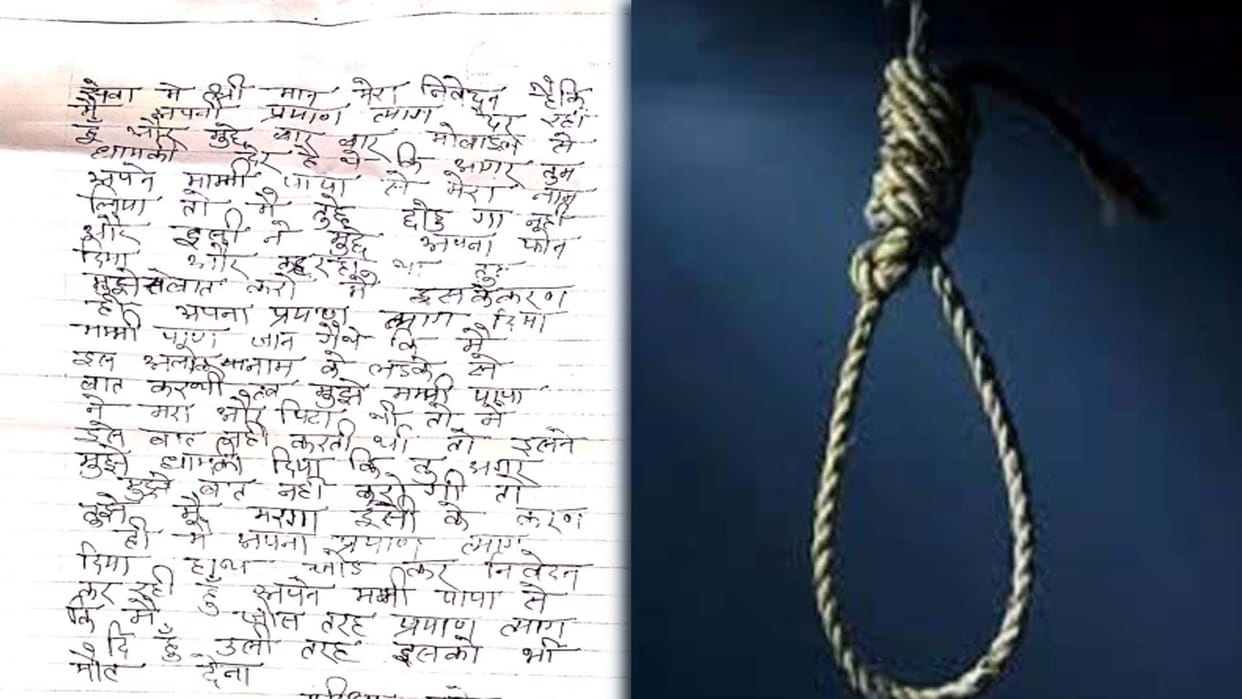 सेवा मे श्री मान मेरा निवेदन हैकि
मै अपनी प्रयाण त्याग देर रही
हुँ और मुझे बार बार मोबाइल से
धामकी देर हे थे कि अगर तुम
अपने माम्मी पापा से मेरा नाम
लिया तो मै तुझे छोडु गा नही
और इसी ने मुझे अपना फोन
दिया और कह रहा था तुम
मुझेसेबात करो मै इसकेकरण
ही अपना प्रयाण त्याग दिया
मम्मी पापा जान गेथे कि मै
इस अलोक नाम के लडके से
बात करथी तब मुझे मम्मी पापा
ने मरा और पिटा थी तो मे
इसे बात नही करती थी तो इसने
मुझे धामकी दिया कि तु अगर
मुझे बात नही करो गी तो
तुझे मै मरगा इसी के करण
ही मै अपना प्रयाण त्याग
दिया हाथ जोड कर निवेदन
कर रही हुँ अपने मम्मी पापा से
कि मै जीस तरह प्रयाण त्याग
दि हुँ उसी तरह इसको भी
मौत देना